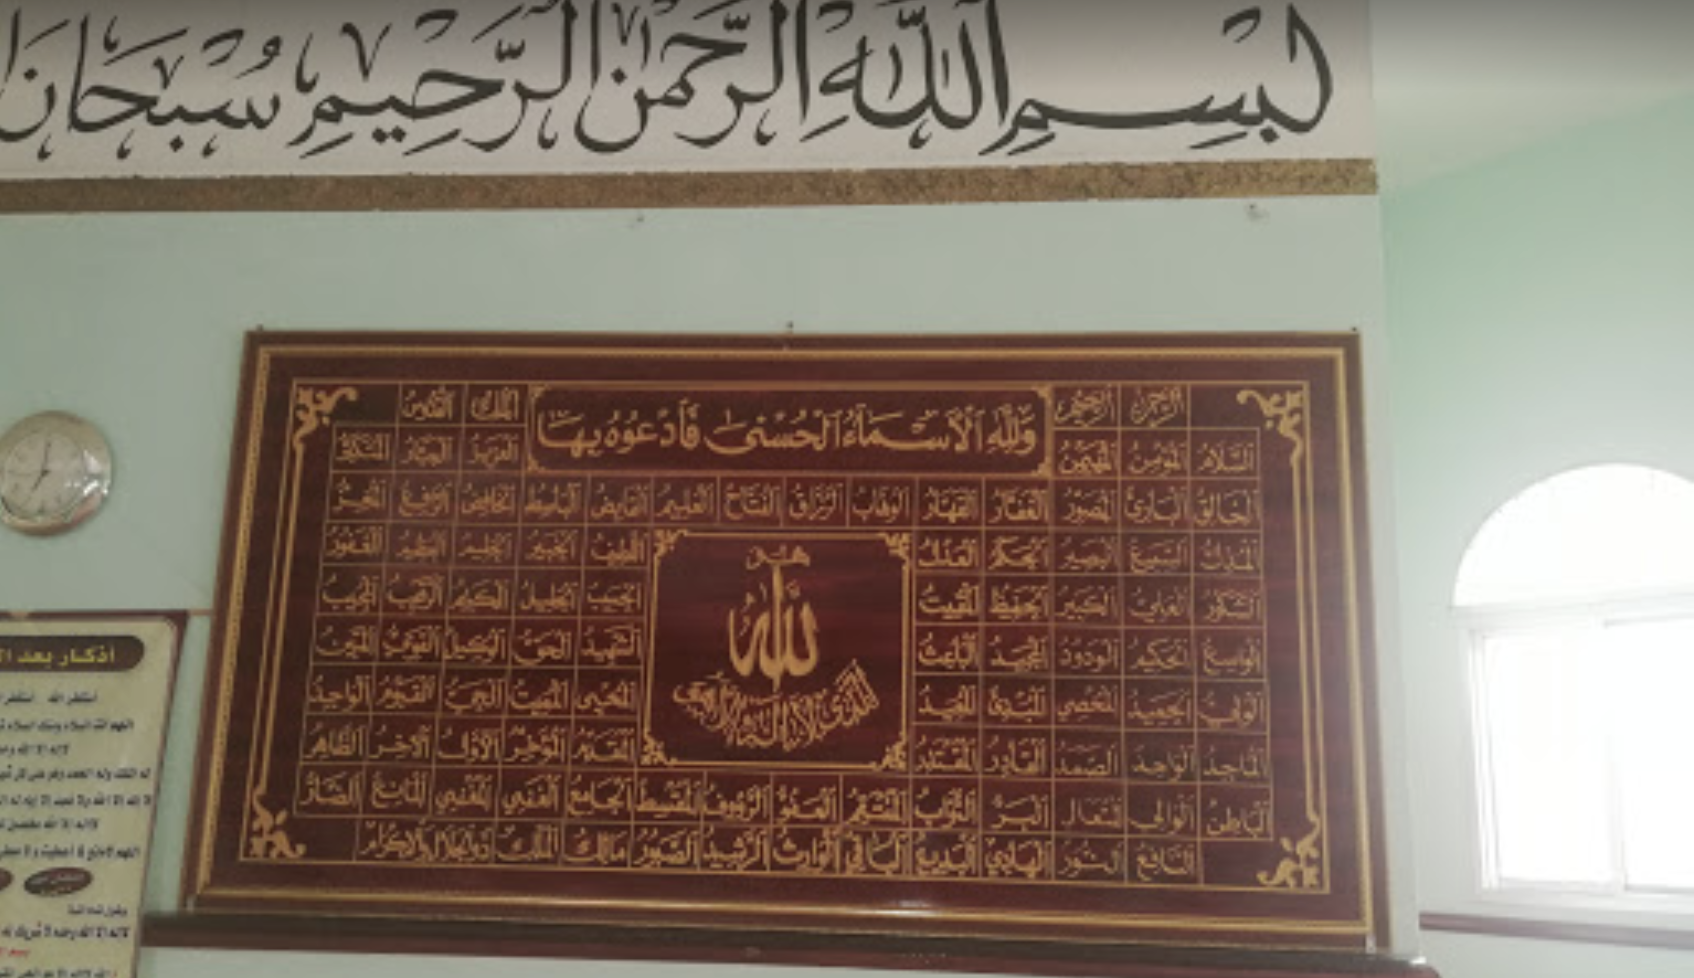 بِسْمِ اللَّهِ الرَّحْمَنِ الرَّحِيمِ سُبْحَانَ
الرحمن الرحيم
وَلِلَّهِ الْأَسْمَاءُ الْحُسْنَى فَادْعُوهُ بِهَا
الملك القدوس
السلام المؤمن المهيمن
العزيز الجبار المتكبر
الخالق البارئ المصور الغفار القهار الوهاب الرزاق الفتاح العليم القابض الباسط الخافض الرافع المعز
المذل السميع البصير الحكم العدل
اللطيف الخبير الحليم العظيم الغفور
الشكور العلي الكبير الحفيظ المقيت
الحسيب الجليل الكريم الرقيب المجيب
الواسع الحكيم الودود المجيد الباعث
الشهيد الحق الوكيل القوي المتين
الولي الحميد المحصي المبدئ المعيد
المحيي المميت الحي القيوم الواجد
الماجد الواحد الصمد القادر المقتدر
المقدم المؤخر الأول الآخر الظاهر
هو
الله
الذي لا إله إلا هو
الباطن الوالي المتعال البر التواب المنتقم العفو الرؤوف المقسط الجامع الغني المغني المانع الضار
النافع النور الهادي البديع الباقي الوارث الرشيد الصبور مالك الملك ذو الجلال والإكرام
أذكار بعد
أستغفر الله أستغفر
اللهم أنت السلام ومنك السلام
لا إله إلا الله
له الملك وله الحمد وهو على كل